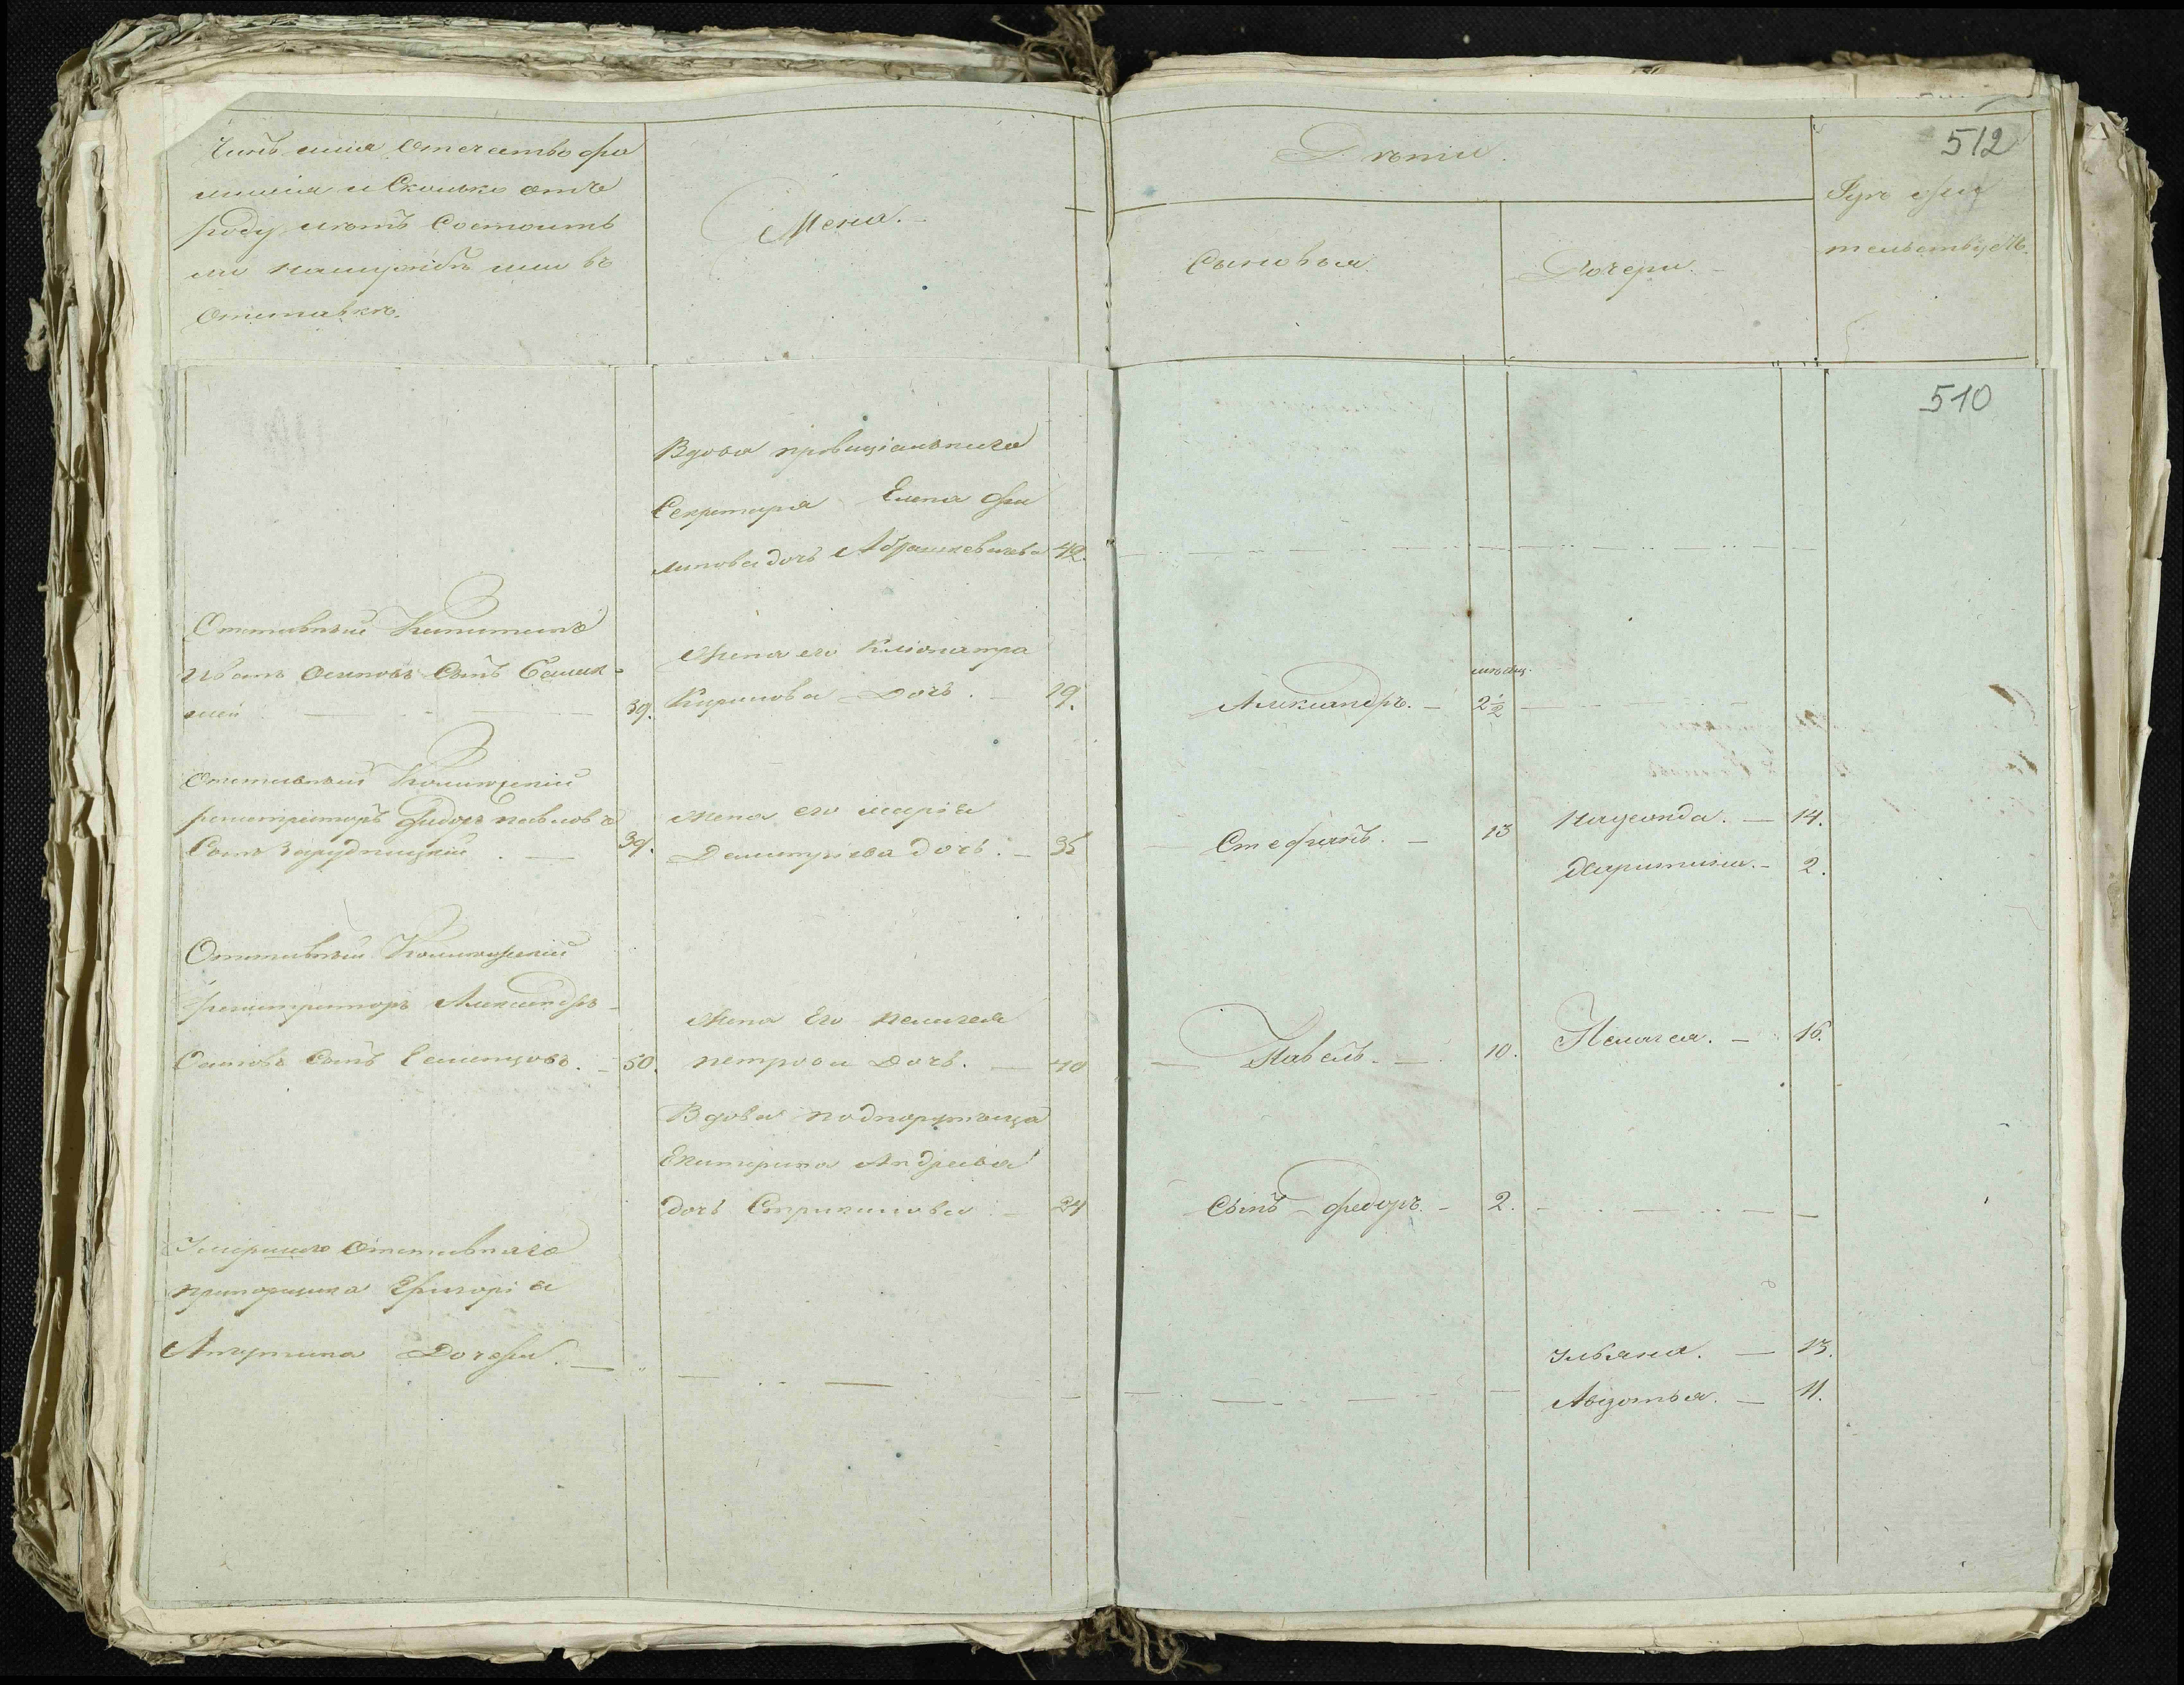 Чинъ имя отечество фа
милия и сколько отъ
роду летъ состоитъ
ли на службе или въ
отставке.
Жена.
Дети.
Сыновья.
Дочери.
Где жи
тельствуетъ.
512
510
Вдова провинциальнаго
Секретаря Елена Фи
липова дочь 42
Отставный Капитанъ
Иванъ Осиповъ Сынъ
39.
Жена его Клеопатра
Кирилова Дочь. — 29.
Александръ. —
месяц.
2½
Отставный Колежский
регистраторъ Федоръ Павловъ
Сынъ Зарудницкий. — 39.
Жена его Мария
Демитриева дочь. — 35
Стефанъ. — 13
14.
Харитина. — 2.
Отставный Колежский
регистраторъ Александръ
Осиповъ Сынъ Селинцовъ. — 50.
Жена Его Пелагея
Петрова Дочь. — 40
Павелъ. — 10.
Пелагея. — 16.
Вдова подпорутчица
Екатерина Андреева
дочь — 24
Сынъ Федоръ. — 2.
Умершаго отставнаго
прапорщика Григория
Дочери. —
Ульяна. — 13.
Авдотья. — 11.